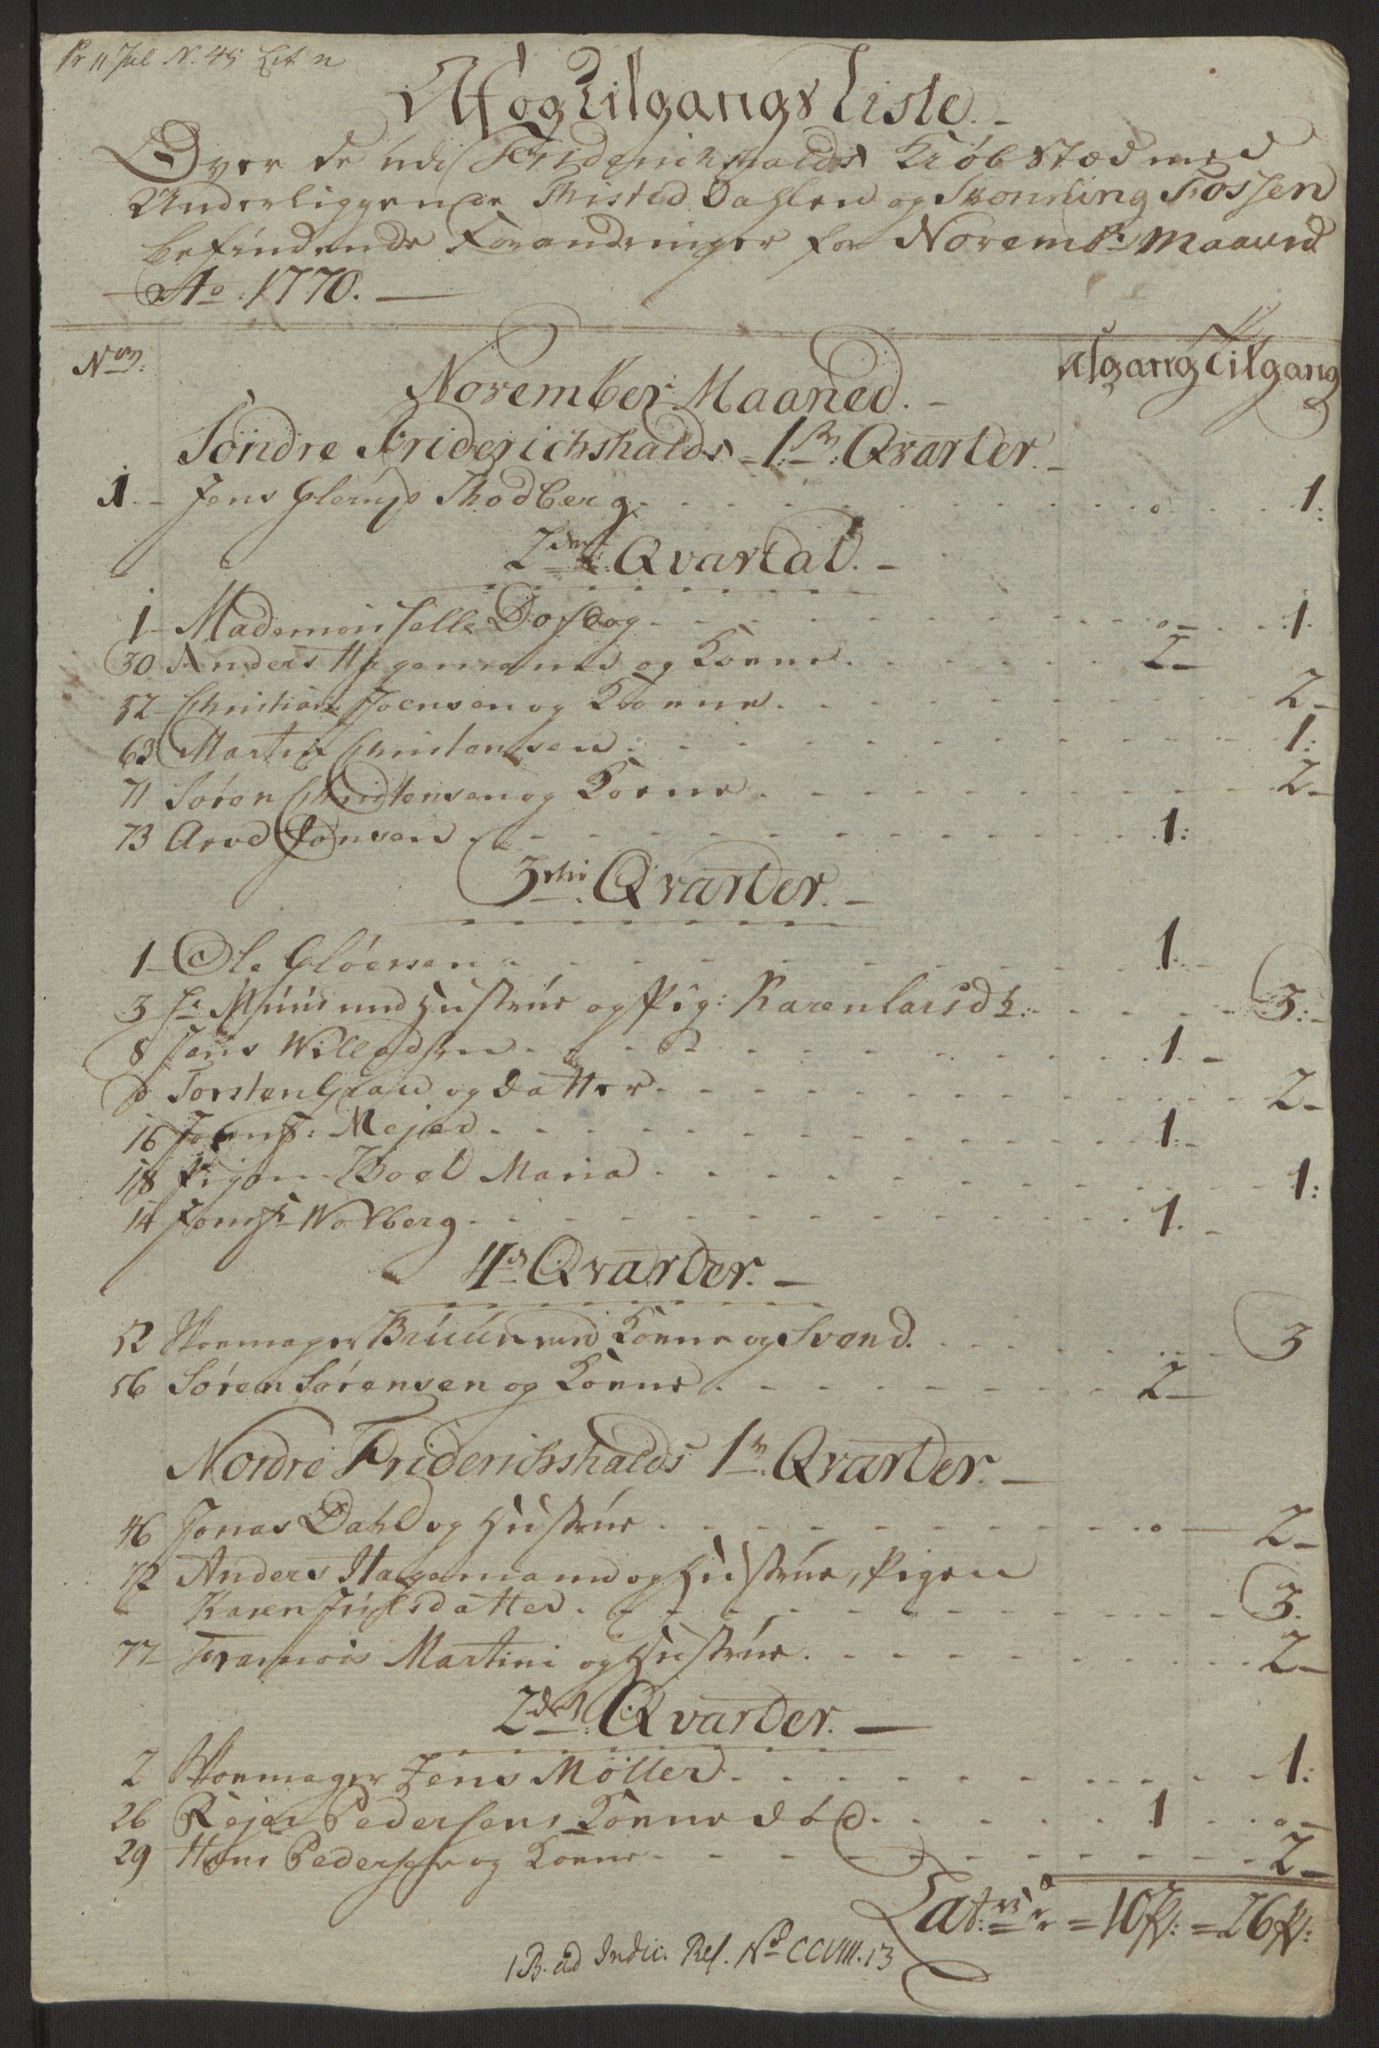 Pr 11 Jul N. 45 Lit n
Af og Tilgangs Liste.
Over de udi Friderichshalds Kiöbstæd med
Underliggende Thisted Dahlen og Skonning Fossen
befindende Forandringer for Novembr. Maaned
Ao. 1770.
Nom: Afgang Tilgang
November Maaned.
Söndre Friderichshalds 1ste Qvarter.
1 Jens Glerup Thodberg. o 1:
2det Qvartal.
1 Mademoiselle o 1.
30 Anders Hagemand og Kone. 2
52 Christian Joensen og Kone. 2
63 Martin Christensen. 1:
71 Sören Christensen og Kone. 2
73 Arve Jonsen. 1:
3die Qvarter.
1 Ole Glöersen 1.
3 Hr. Muus med Hustrue og Pig: Karen Larsd. 3:
8 Jens Willadsen. 1.
Torsten Graae og Datter. 2
16 Jomf: Mejed. 1:
18 Pigen Boel Maria. 1:
14 Jomfr. Wolberg. 1.
4de Qvarter.
52 Bruun med Kone og Svend. 3
56 Sören Sörensen og Kone. 2
Nordre Friderichshalds 1ste Qvarter.
46 Jonas Dahl og Hustrue. o 2
72 Anders Hagemand og Hustrue, Pigen
Karen Juhlsdatter. 3.
77 Francois Martini og Hustrue. 2
2det Qvarter.
2 Jens Möller. 1:
26 Rejer Pedersens Kone död. 1 o
29 Hans Pedersen og Kone. 2
Lat: = 10 ps: = 26 ps:
1 B. ad Indic. Ref. No CCVIII. 13